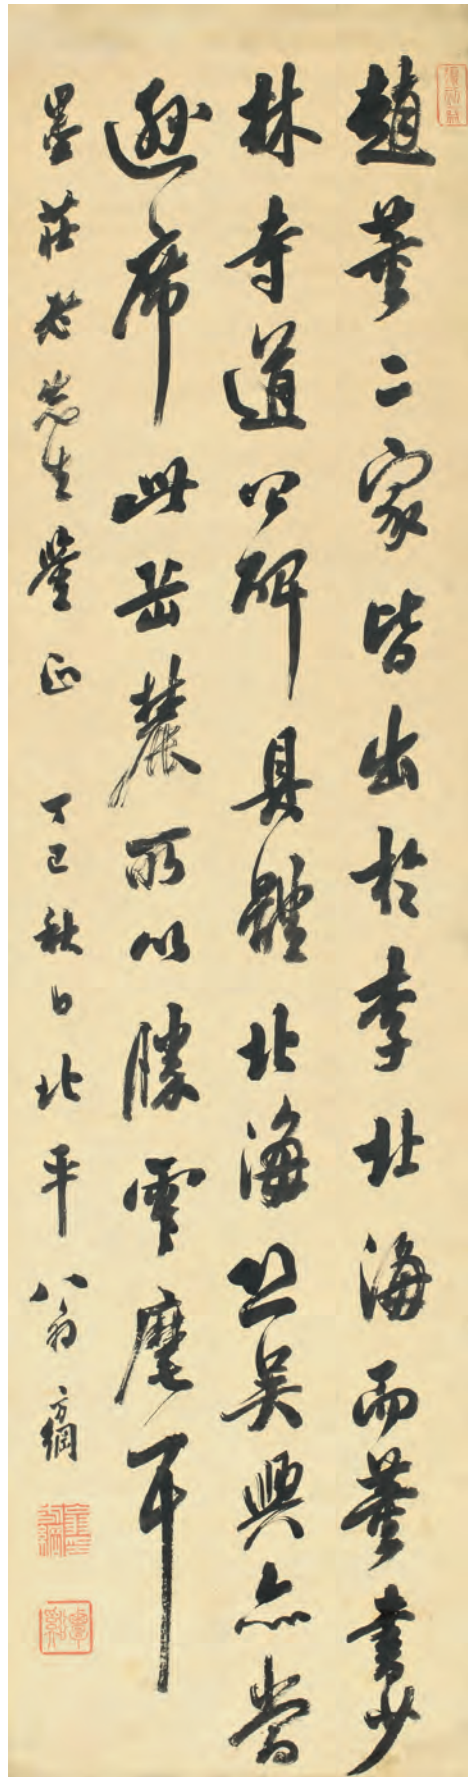 趙董二家皆出於李北海而董書少
林寺道公碑具體北海恐吴興亦當
遜席此岳麓所以勝雲麾耳
墨莊老先生鑒正 丁巳秋日北平翁方綱